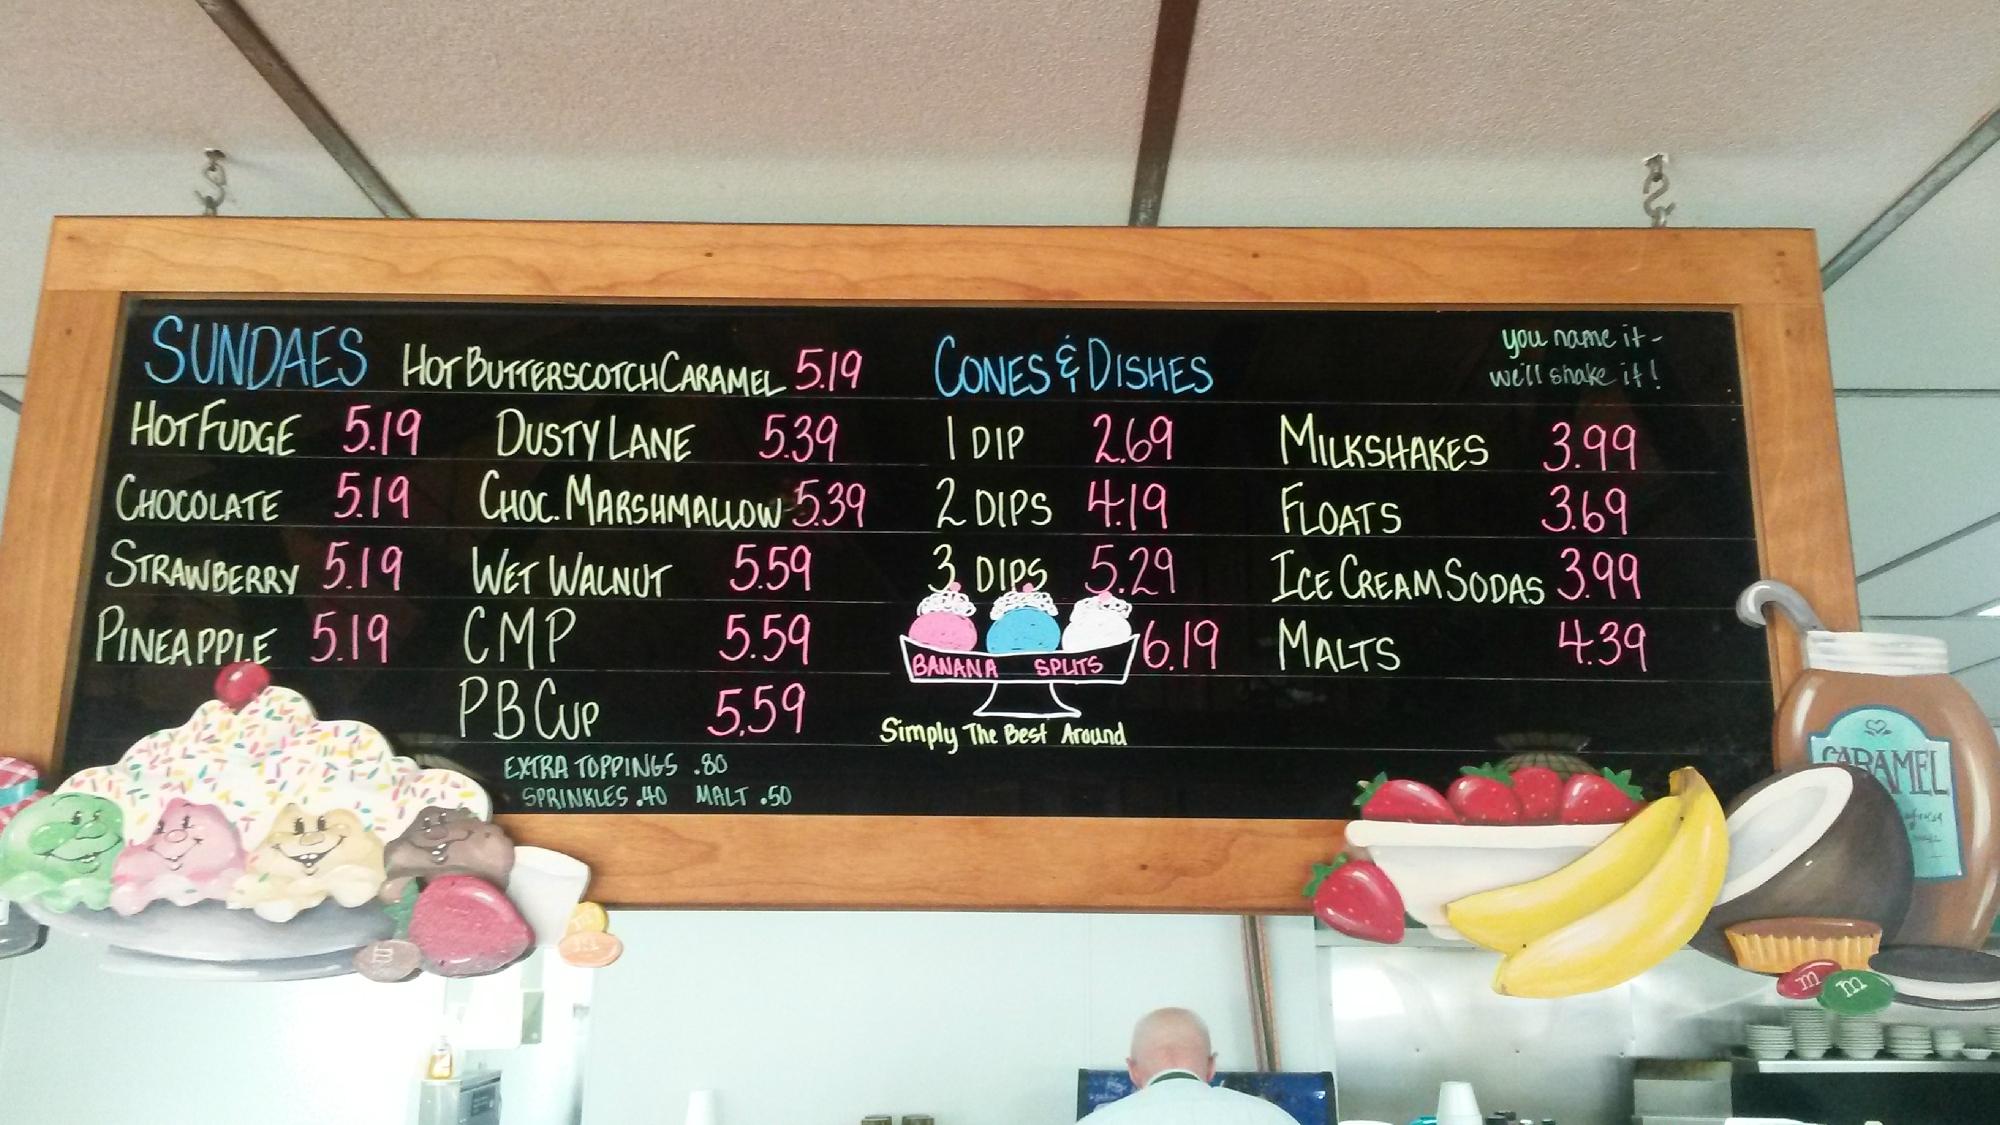 SUNDAES
HOT BUTTERSCOTCH CARAMEL 5.19
HOT FUDGE 5.19
CHOCOLATE 5.19
STRAWBERRY 5.19
PINEAPPLE 5.19
DUSTY LANE 5.39
CHOC. MARSHMALLOW 5.39
WET WALNUT 5.59
CMP 5.59
PB CUP 5.59
EXTRA TOPPINGS .80
SPRINKLES .40 MALT .50
CONES & DISHES
1 DIP 2.69
2 DIPS 4.19
3 DIPS 5.29
BANANA SPLITS 6.19
Simply The Best Around
you name it -
we'll shake it!
MILKSHAKES 3.99
FLOATS 3.69
ICE CREAM SODAS 3.99
MALTS 4.39
CARAMEL
m
m